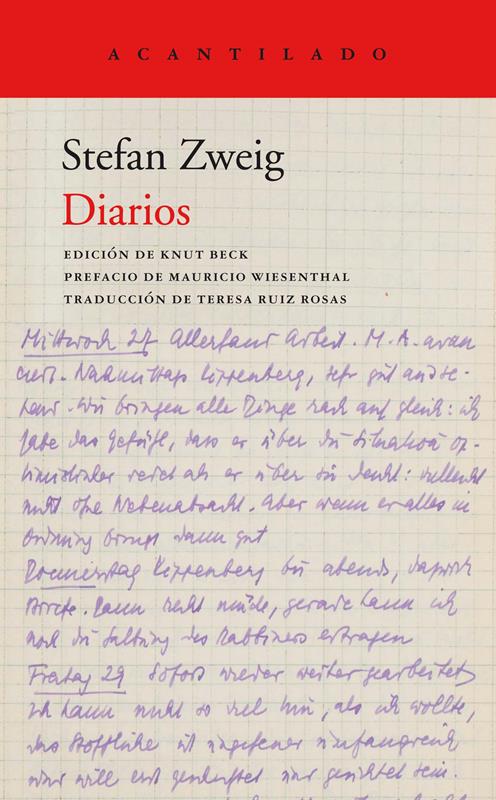 ACANTILADO
Stefan Zweig
Diarios
EDICIÓN DE KNUT BECK
PREFACIO DE MAURICIO WIESENTHAL
TRADUCCIÓN DE TERESA RUIZ ROSAS
Mittwoch 27 Allerhand Arbeit. M. A. avan
ciert. Nachmittags Kippenberg, sehr gut
Wir bringen alle Dinge rasch auf gleich: ich
habe das Gefühl, dass er über die Situation op-
timistischer redet als er über sie denkt: vielleicht
nicht ohne Nebenabsicht. Aber wenn er alles in
Ordnung bringt dann gut
Donnerstag Kippenberg bis abends, dazwisch
Briefe. Dann recht müde, gerade kann ich
noch die Haltung des Rabbiners ertragen
Freitag 29 Sofort wieder weiter gearbeitet,
ich kann nicht so viel hin, als ich wollte,
das Stoffliche ist ungeheuer umfangreich
und will erst gesichtet sein.